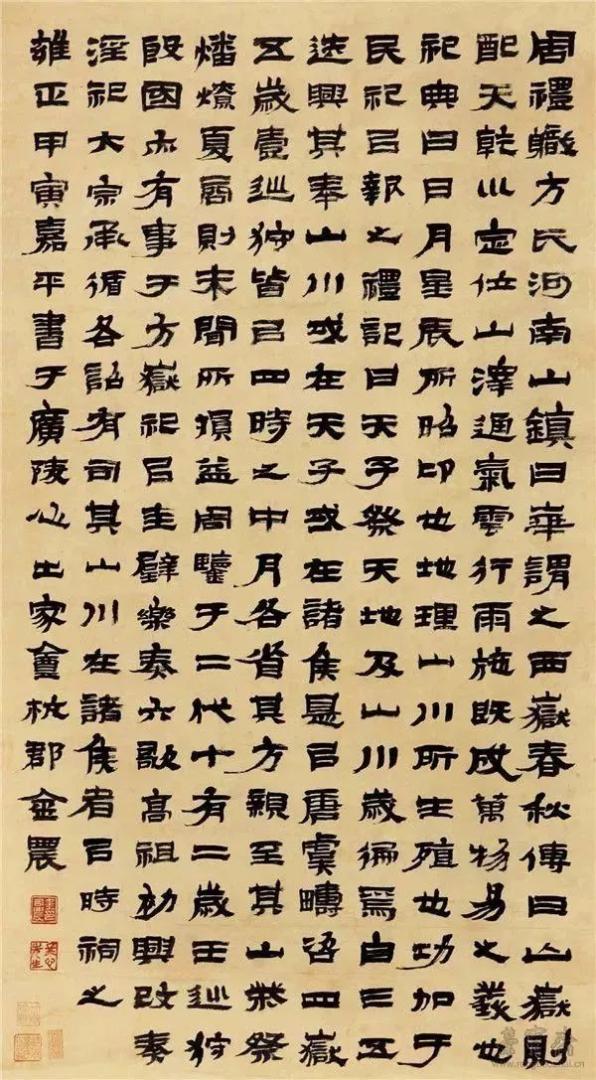 周禮職方氏河南山鎮曰華謂之西嶽春秋傳曰山嶽則
配天乾川定位山澤通氣雲行雨施既成萬物易之義也
祀典曰日月星辰所昭卬也地理山川所生殖也功加于
民祀㠯報之禮記曰天子祭天地及山川歲徧焉自三五
迭興其奉山川或在天子或在諸侯是㠯唐虞疇咨四嶽
五歲壹巡狩皆㠯四時之中月各省其方親至其山柴祭
燔燎夏商則未聞所損益周鑒于二代十有二歲王巡狩
殷國亦有事于方嶽祀㠯圭璧樂奏六歌高祖初興改秦
淫祀大宗承循各詔有司其山川在諸侯者㠯時祠之
雍正甲寅嘉平書于廣陵心出家盦杭郡金農